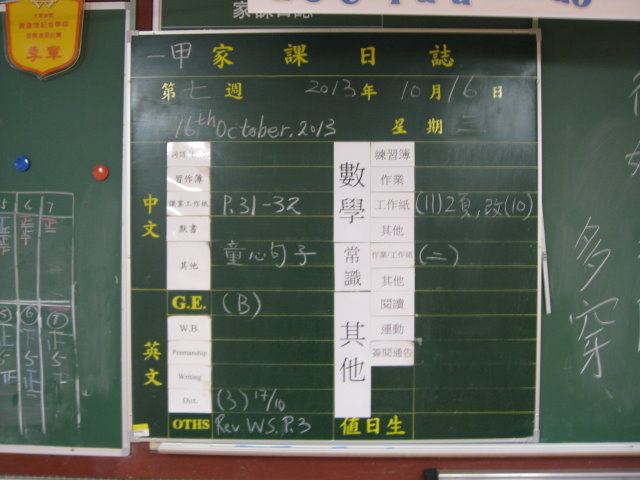 季軍
家課日誌
一甲家課日誌
第七週 2013年 10月16日
16th October, 2013 星期三
中文
習作簿
課堂工作紙 P.31-32
默書
其他 童心句子
G.E. (B)
英文
W.B.
Penmanship
Writing
Dict. (3) 17/10
OTHS Rev WS. P.3
數學
練習簿
作業
工作紙 (11)2頁, 改(10)
其他
常識
作業/工作紙 (二)
其他
其他
閱讀
運動
簽閱通告
值日生
多穿
5 6 7
5 6 7